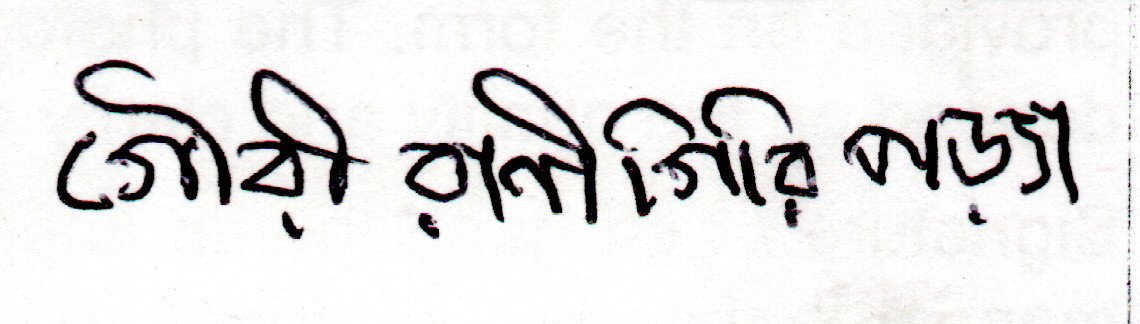 গৌরী রানী গিরি পড়্যা